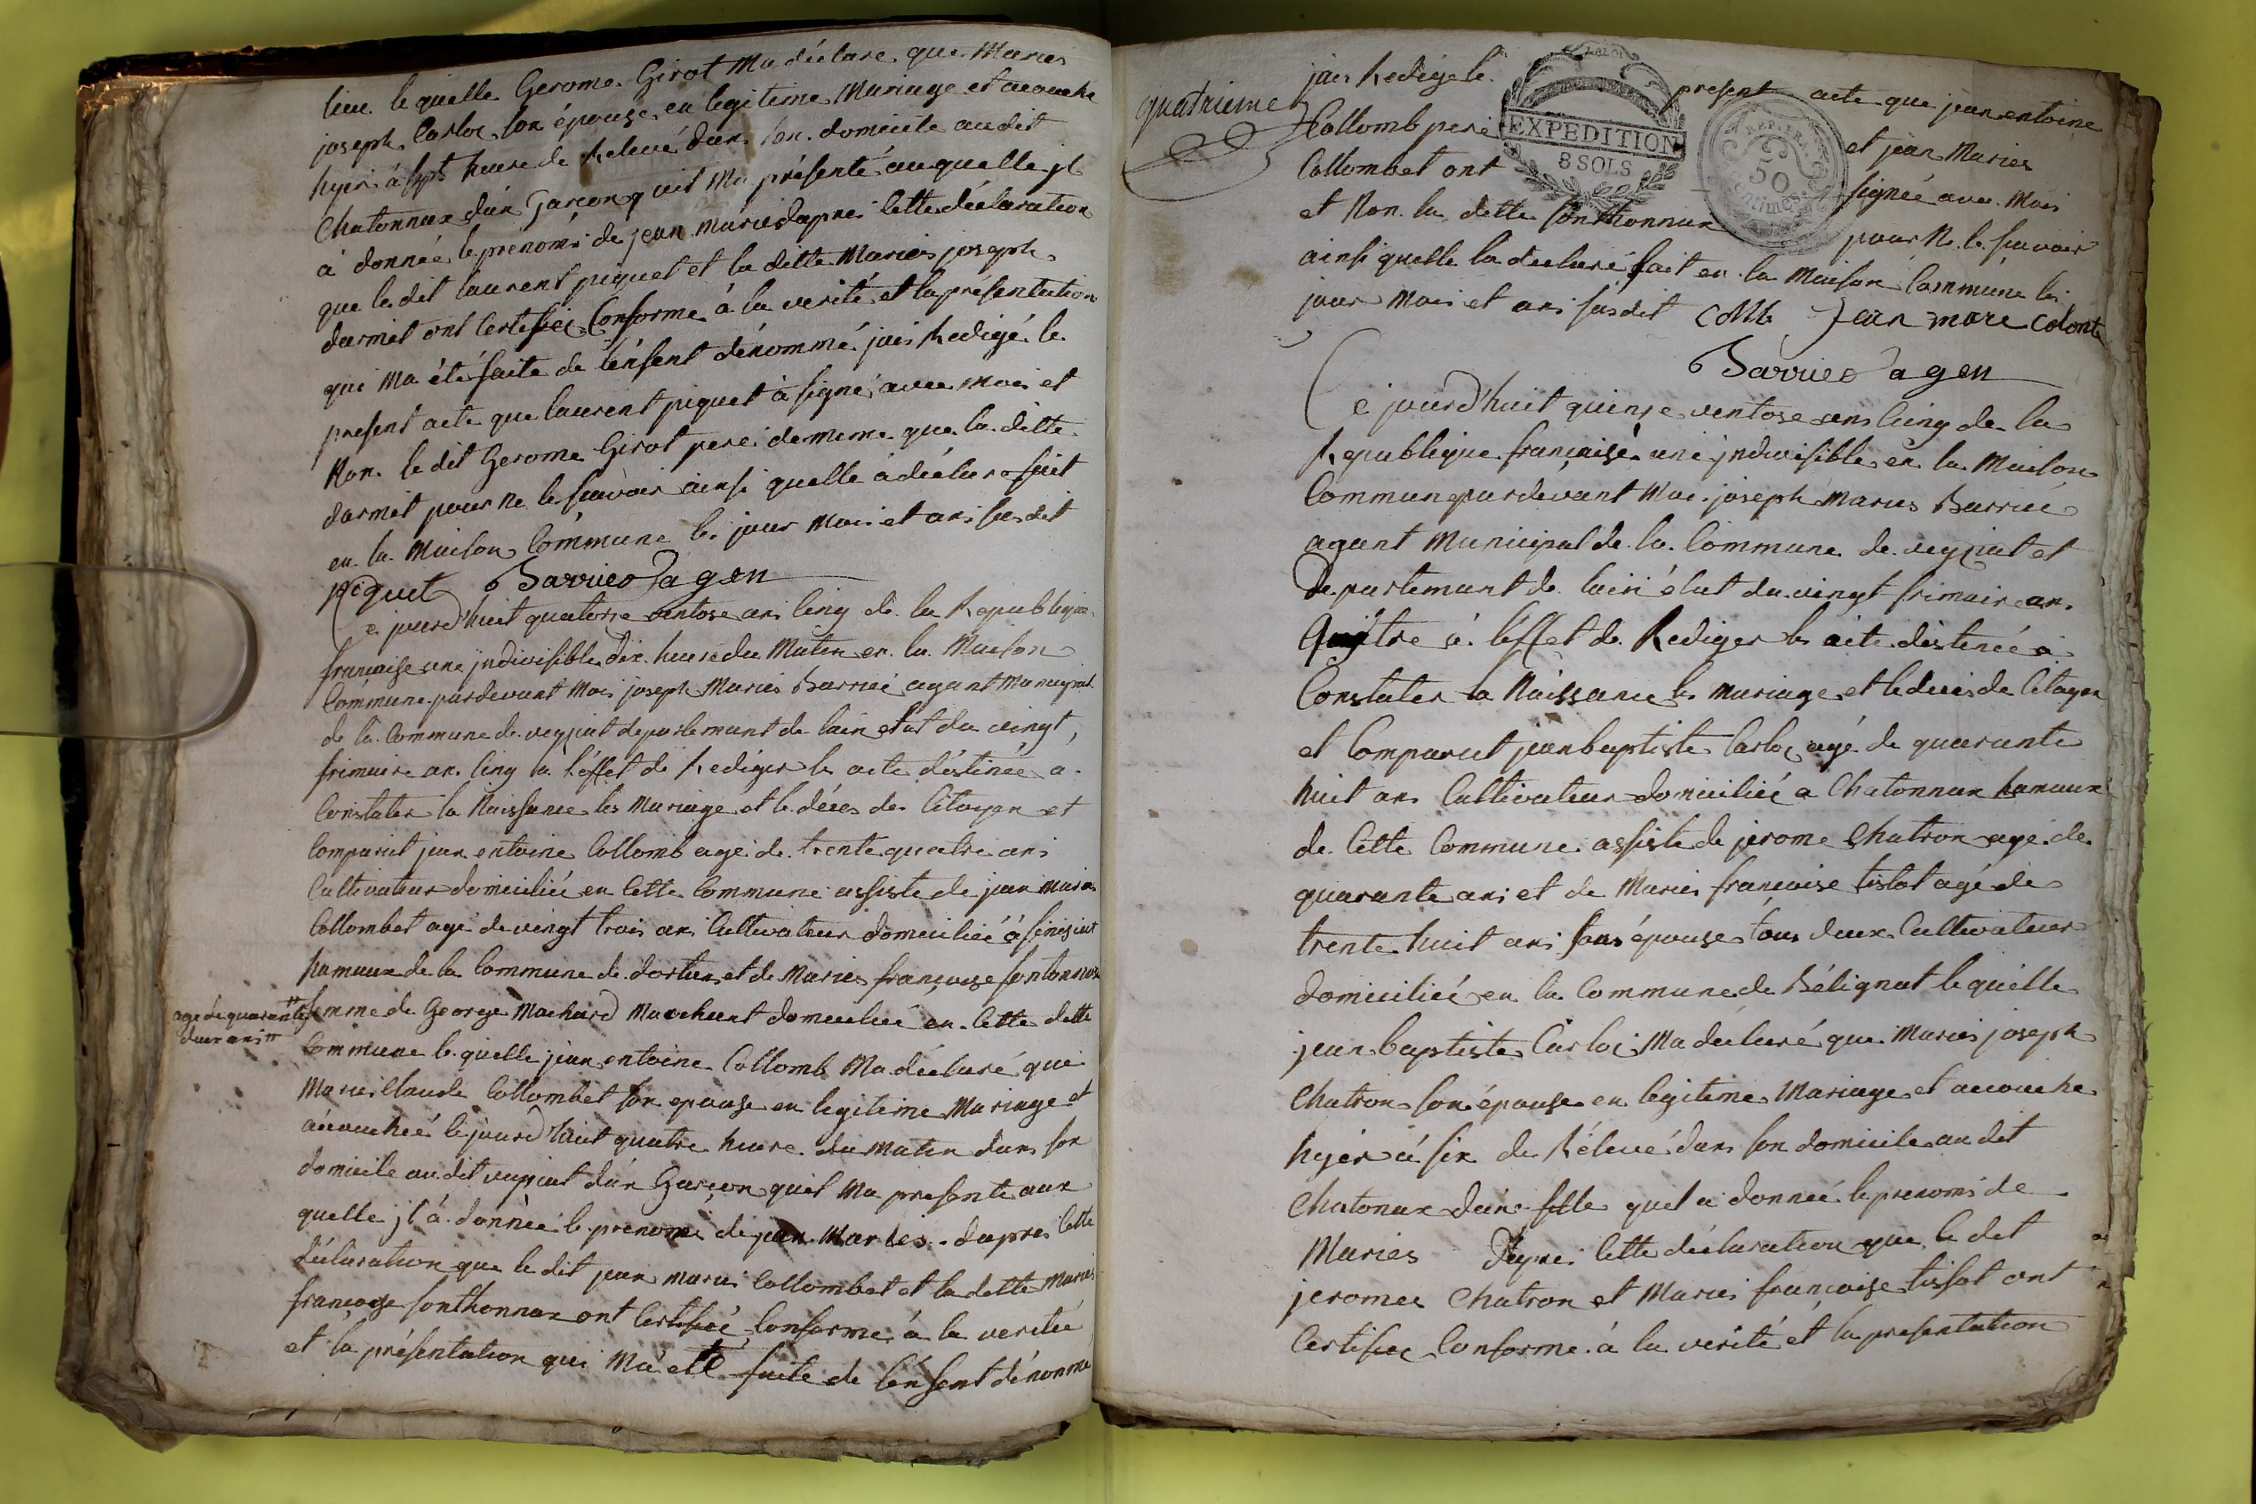 lieu lequelle Gerome Girot Ma déclare que Maries
joseph Carlos son épouse en legitime Mariage et acouche
hyer á sept heure de Relevé dans son domicile audit
Chatonnax dún Garçon quil Ma présenté auquelle jl
á donnée le prénoms de jean maries dapres Cette déclaration
que le dit laurent piquet et la ditte Maries joseph
darmet ont Certifiée Conforme á la verité et la présentation
qui Ma été faite de lénfent dénommé jais Redigé le
present acte que laurent piquet á signé avec mois et
Non le dit Gerome Girot pere de meme que la ditte
darmet pour ne le savoir ainsi quelle á déclare fait
en la Maison Commune les jour Mois et ans susdit
piquet Barrieo agen
Ce jourd'huit quatorze ventose ans Cinq de la Republique
française une jndivisible dix heure du Matin en la Maison
Commune pardevant Mois joseph Maries Barrué agant Municipal
de la Commune de veyziat departemant de lain élut du vingt
frimaire an Cinq a léffet de Rediger les acte déstinée a
Constater la Naissance les Mariage et le déces des Citoyen et
Comparut jean entoine Collomb agé de trente quatre ans
Cultivateur domiciliée en Cette Commune assiste de jean Maries
Collombet agé de vingt trois ans Cultivateur domiciliée á
hamaux de la Commune de dortan et de Maries françoise fonthonnax
age de quarante
deux ans
femme de George Machard Marchant domiciliée en Cette ditte
Commune lequelle jean entoine Collomb Ma déclaré que
Marie Claude Collombet son epouse en legitime Mariage et
acouchée Cejourd'huit quatre heure du Matin dans son
domicile audit veyziat dún Garçon quil Ma présenté aux
quelle jl á donnée le prenoms de jean Maries dapres Cette
déclaration que le dit jean maries Collombet et la ditte Maries
françoise fonthonnax ont Certifiée Conforme á la verité
et la présentation qui Ma été faite de lénfent dénommé
quatrieme
jais Redigé le present acte que jean entoine
Collomb pere et jean Maries
Collombet ont signée avec Mois
et Non la ditte fonthonnax pour Ne le savoir
ainsi quelle la declaré fait en la Maison Commune les
jour Mois et ans susdit Colltb Jean marc Colont
EXPEDITION
8 SOLS
50
Centimes
Barrieo agen
Ce jourd'huit quinze ventose ans Cinq de la
Republique française une jndivisible en la Maison
Commun pardevant Mois joseph Maries Barrué
agant Municipal de la Commune de veyziat et
Departemant de lain élut du vingt frimaire an
Quatre á léffet de Rediger les acte destinée a
Constater la Naissance les Mariage et le deces de Citoyen
et Comparut jean baptiste Carloz agé de quarante
huit ans Cultivateur domiciliée a Chatonnax hamaux
de Cette Commune assisté de jerome Chatron agé de
quarante ans et de Maries françoise tissot agé de
trente huit ans sons épouse tous deux Cultivateur
domiciliée en la Commune de Bélignat lequélle
jean baptiste Carloz Ma declaré que Maries joseph
Chatron son épouse en legitime Mariage et acouche
hyér á six de Rélevé dans son domicile audit
Chatonax dune fille quel a donneé le prenoms de
Maries Dapres Cette déclaration que le dit
jeromes Chatron et Maries françoise tissot ont
Certifiée Conforme á la verité et la présentation